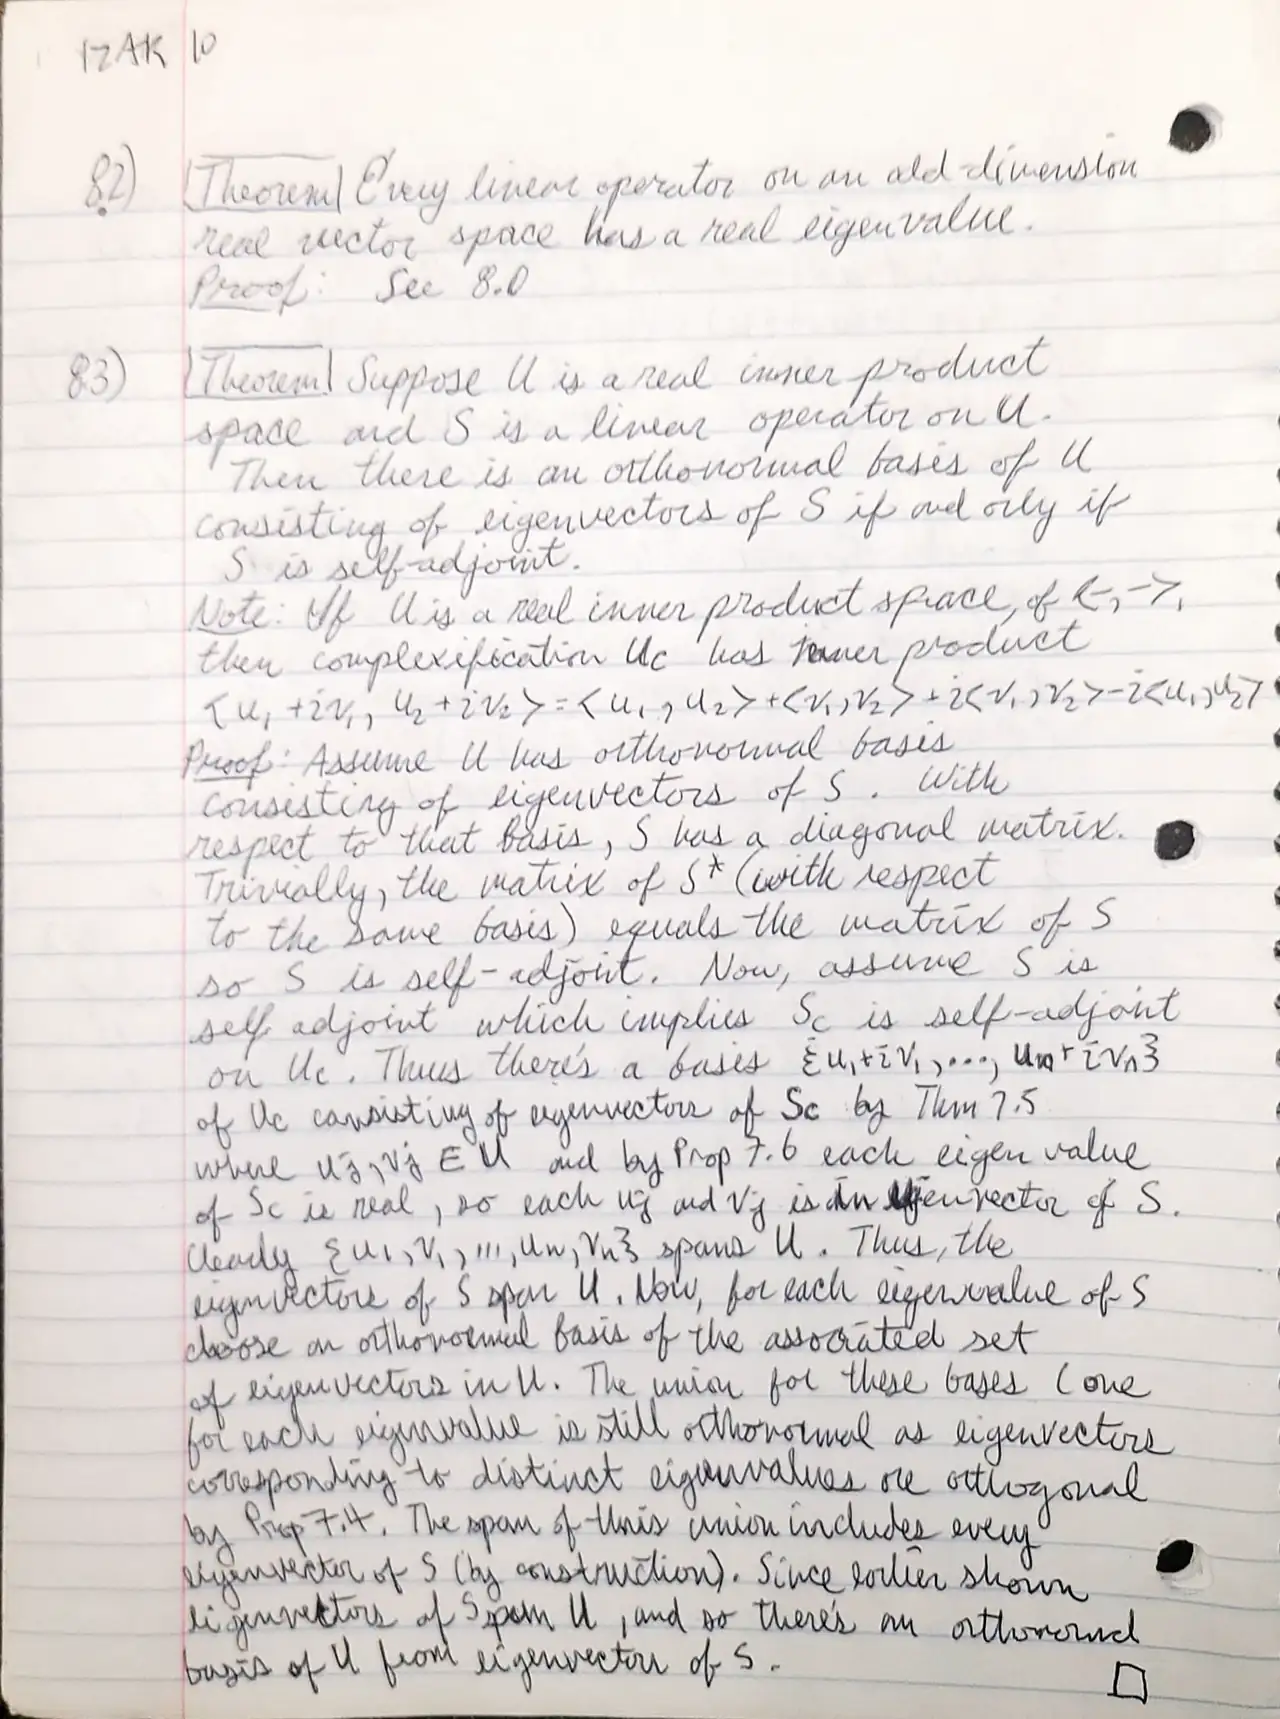 IZAK 10
8.2) Theorem Every linear operator on an odd-dimension
real vector space has a real eigenvalue.
Proof: See 8.0
8.3) Theorem Suppose U is a real inner product
space and S is a linear operator on U.
Then there is an orthonormal basis of U
consisting of eigenvectors of S if and only if
S is self-adjoint.
Note: If U is a real inner product space, of <-,->,
then complexification Uc has inner product
<u₁+iv₁, u₂+iv₂>=<u₁,u₂>+<v₁,v₂>+i<v₁,v₂>-i<u₁,u₂>
Proof: Assume U has orthonormal basis
consisting of eigenvectors of S. With
respect to that basis, S has a diagonal matrix.
Trivially, the matrix of S* (with respect
to the same basis) equals the matrix of S
so S is self-adjoint. Now, assume S is
self adjoint which implies Sc is self-adjoint
on Uc. Thus there's a basis {u₁+iv₁,..., uₙ+ivₙ}
of Uc consisting of eigenvectors of Sc by Thm 7.5
where uj,vj ∈ U and by Prop 7.6 each eigen value
of Sc is real, so each uj and vj is an eigenvector of S.
Clearly {u₁,v₁,...,uₙ,vₙ} spans U. Thus, the
eigenvectors of S span U. Now, for each eigenvalue of S
choose an orthonormal basis of the associated set
of eigenvectors in U. The union for these bases (one
for each eigenvalue is still orthonormal as eigenvectors
corresponding to distinct eigenvalues are orthogonal
by Prop 7.4. The span of this union includes every
eigenvector of S (by construction). Since earlier shown
eigenvectors of S span U, and so there's an orthonormal
basis of U from eigenvectors of S.
□